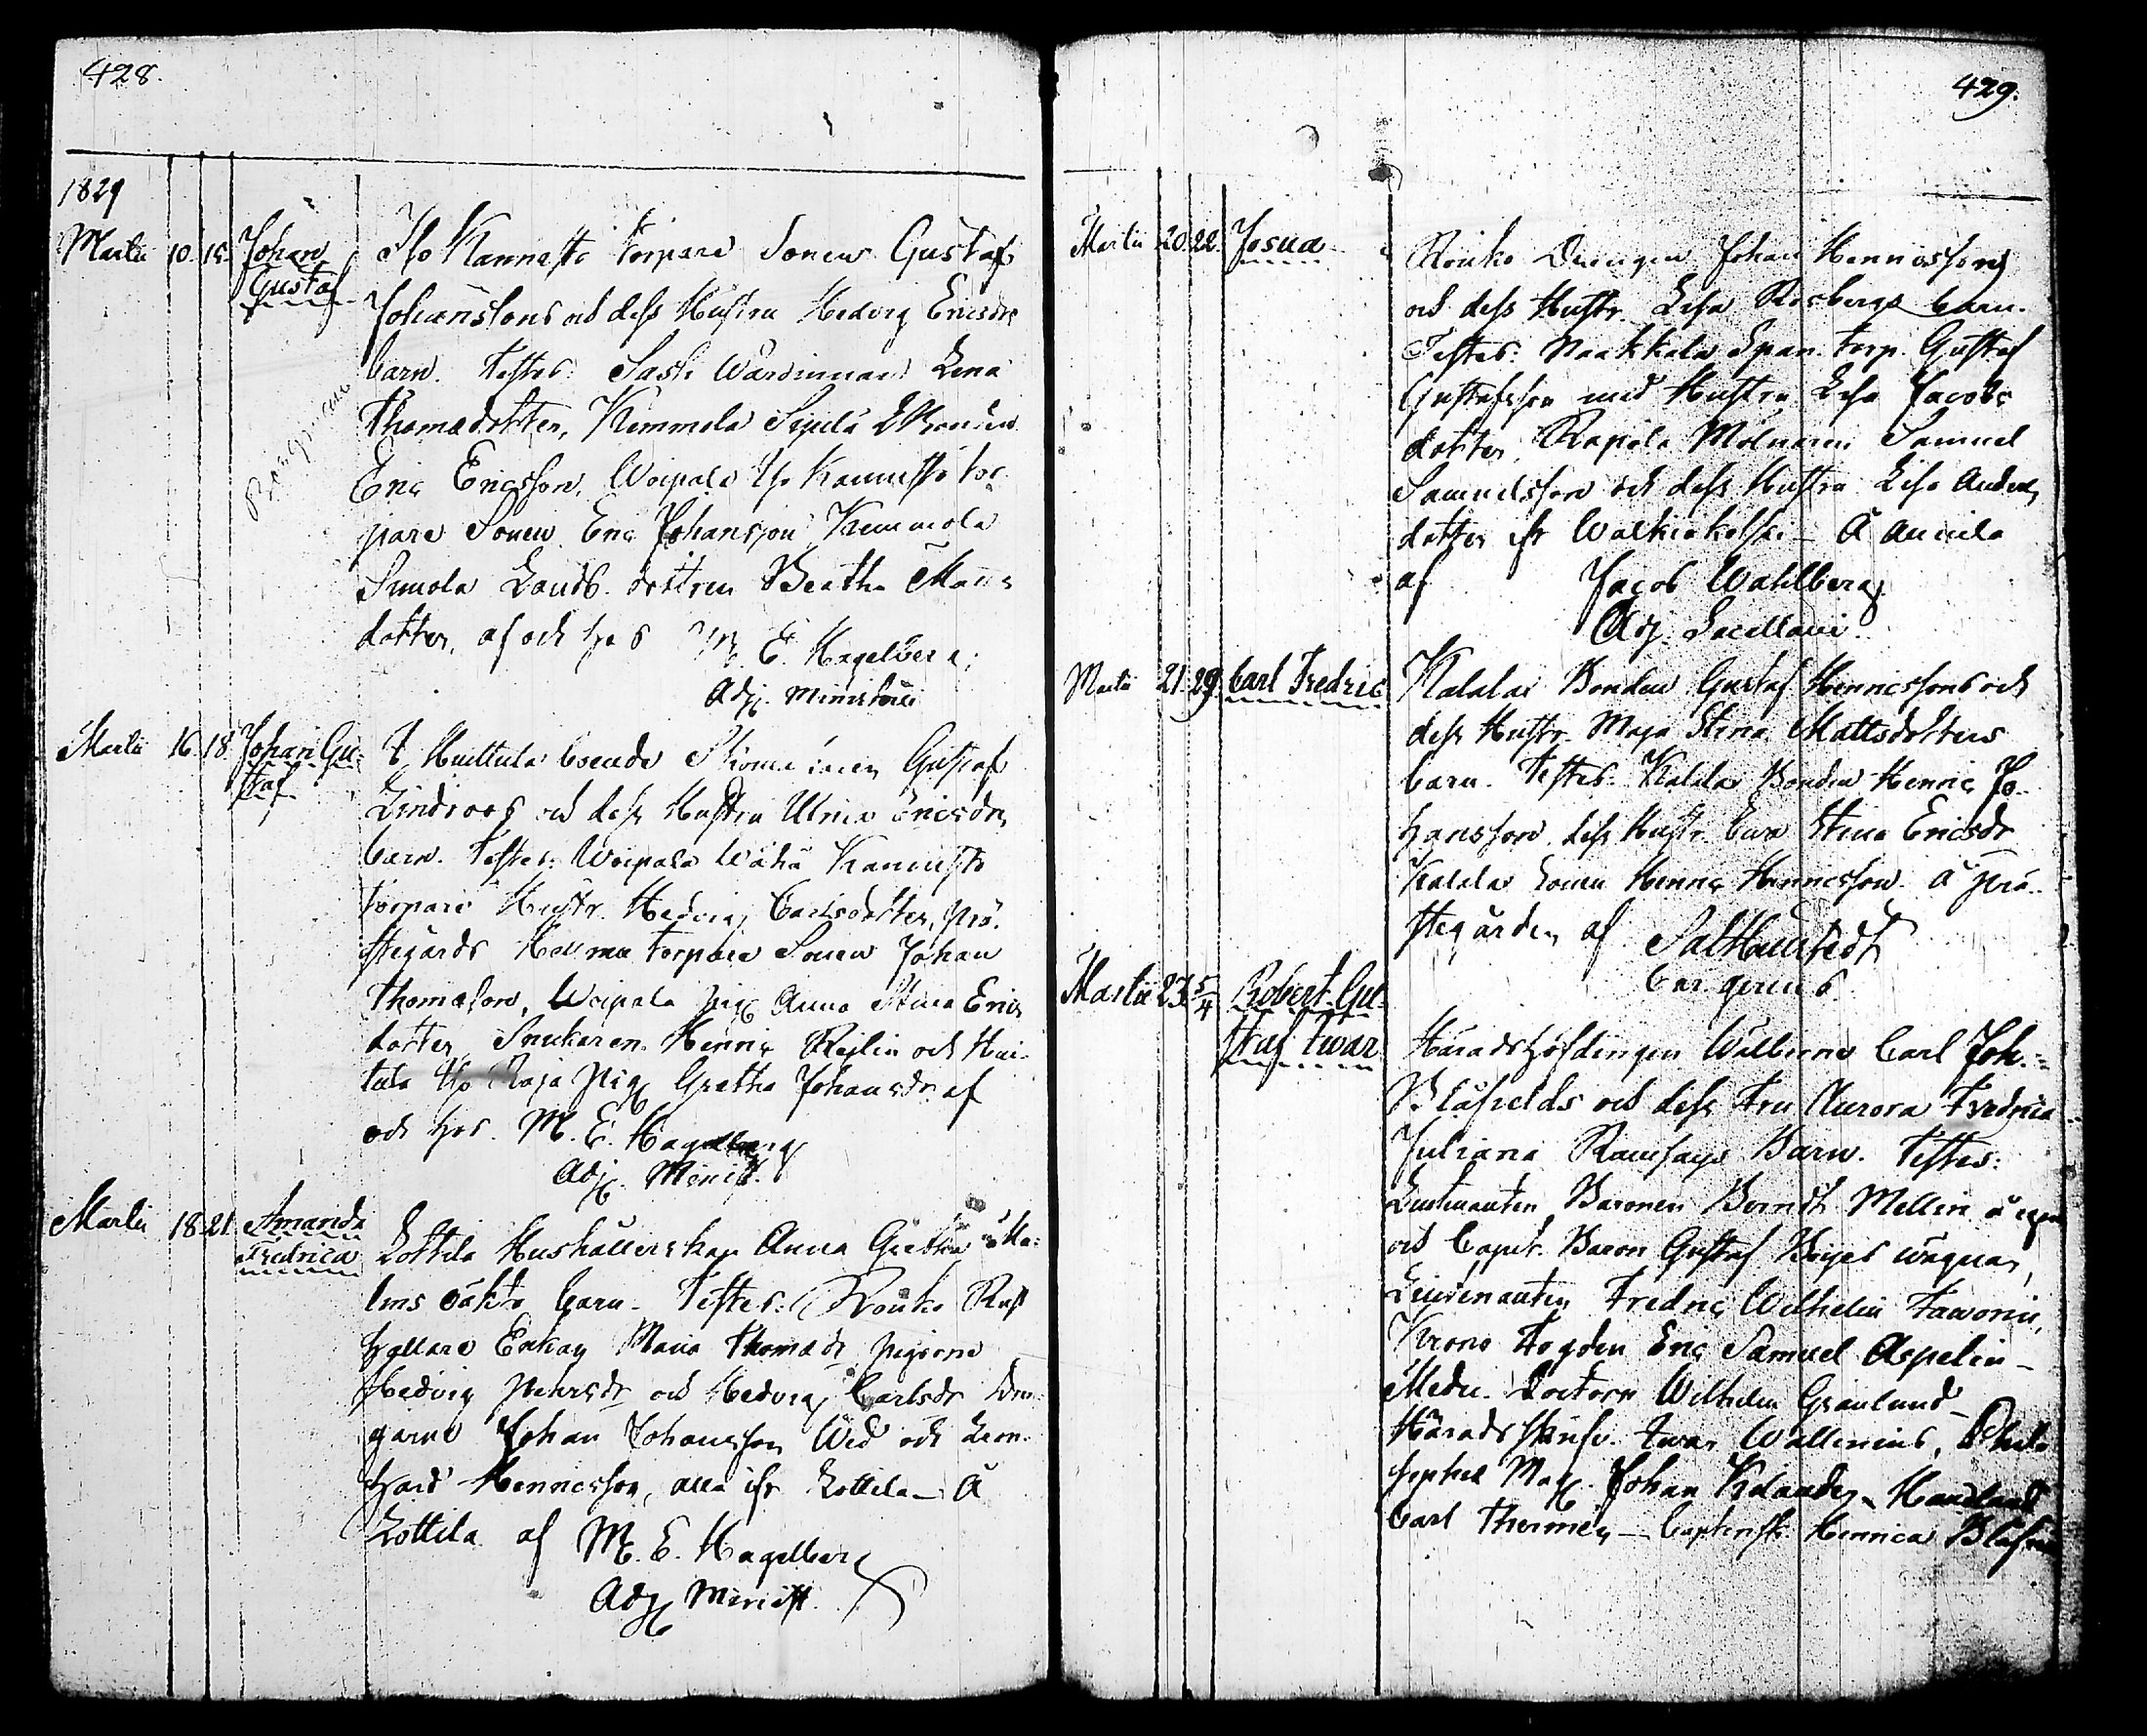 428.
1829
Martii 10. 15. Johan Gustaf
Iso Kannisto Torpare Sonens Gustaf
Johanssons och dess Hustru Hedvig Ericsdrs
barn. Testes: Wärdinnan Lena
Thomasdotter, Kemmola Sipilä Bonden
Eric Ericsson, Woipala Iso Kannisto tor-
pare Sonen Eric Johansson Kemmola
Simola Bond. dottren Beatha Matts
dotter, af och hos M. E. Hagelberg
Adj. Ministerii
Martii 16. 18. Johan Gu-
staf
I Huittula boende Gustaf
Lindroos och dess Hustru Ulrica Ericsdrs
barn. Testes: Woipala Wähä Kannisto
torpare Hustr. Hedvig Carlsdotter, Pre-
stegårds torpare Sonen Johan
Thomasson, Woipala pig. Anna Stina Erics
dotter, Snickaren Henric Rejlin och Hui-
tula Iso Raja Pig. Gretha Johansdr. af
och hos. M. E. Hagelberg
Adj. Minist.
Martii 18. 21. Amanda
Fredrica
Lottila Hushållerskan Anna Gretha Ma-
lms oäkta barn. Testes: Rönkö Rust
hållare Enkan Maria Thomasdr pigorna
Hedvig Pehrsdr och Hedvig Carlsdr Drän-
garne Johan Johansson Wid och Leon-
hard Henricsson, alla ifr. Lottila - Å
Lottila af M. E. Hagelberg
Adj. Minist.
429.
Martii 20. 22. Josua
Rönkö Drengen Johan Henricssons
och dess Hustr. Lisa Rosbergs barn.
Testes: Naakkala Span. Torp. Gustaf
Gustafsson med Hustru Lisa Jacobs
dotter, Rapola Mölnaren Samuel
Samuelsson och dess Hustru Lisa Anders
dotter ifr Walkiakoski - Å Annila
af Jacob Wahlberg
Adj. Sacellani.
Martii 21. 29. Carl Fredric
Kalala Bonden Gustaf Henricssons och
dess Hustr. Maja Stina Mattsdotters
barn. Testes. Kalala Bonden Henric Jo-
hansson, dess Hustr. Eva Stina Ericsdr
Kalala Sonen Henric Henricsson. Å Pre-
stegården af Sal Hällstedt
Cur. gerens.
Martii 23. 5/4 Robert Gu-
staf Iwar
Häradshöfdingen Wälborne Carl Joh.
Blåfields och dess Fru Aurora Fredrica
Juliana Ramsays Barn. Testes:
Lieutnanten Baronen Berndt Mellin å egna
och Capit. Baron Gustaf Boijes wägnar,
Lieutenanten Fredric Wilhelm Favorin,
Krono Fogden Eric Samuel Aspelin -
Medic. Doctorn Wilhelm Granlund -
Häradsskrifv. Iwar Wallenius, Philo
sophie Mag. Johan Kelander, Handland
Carl Thermén - Captensk. Henrica Blåfield